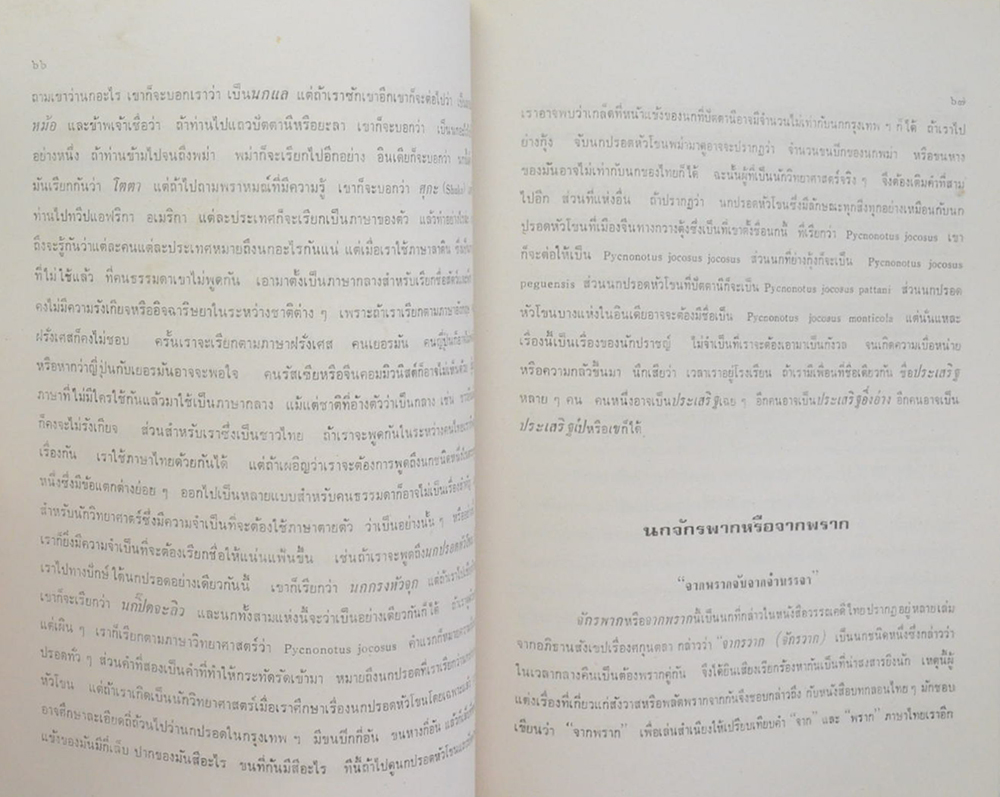 ๖๖
ถามเขาว่านกอะไร เขาก็จะบอกเราว่า เป็นนกแล แต่ถ้าเราซักเขาอีกเขาก็จะต่อไปว่า
หม้อ และข้าพเจ้าเชื่อว่า ถ้าท่านไปแถวปัตตานีหรือยะลา เขาก็จะบอกว่า
อย่างหนึ่ง ถ้าท่านข้ามไปจนถึงพม่า พม่าก็จะเรียกไปอีกอย่าง อินเดียก็จะบอกว่า
มันเรียกกันว่า โตตา แต่ถ้าไปถามพราหมณ์ที่มีความรู้ เขาก็จะบอกว่า ศุกะ
ท่านไปทวีปแอฟริกา อเมริกา แต่ละประเทศก็จะเรียกเป็นภาษาของตัว แล้วทำอย่างไร
ถึงจะรู้กันว่าแต่ละคนแต่ละประเทศหมายถึงนกอะไรกันแน่ แต่เมื่อเราใช้ภาษาลาติน
ที่ไม่ใช้แล้ว ที่คนธรรมดาเขาไม่พูดกัน เอามาตั้งเป็นภาษากลางสำหรับเรียกชื่อสัตว์
คงไม่มีความรังเกียจหรืออิจฉาริษยาในระหว่างชาติต่าง ๆ เพราะถ้าเราเรียกตามภาษาอังกฤษ
ฝรั่งเศสก็คงไม่ชอบ ครั้นเราจะเรียกตามภาษาฝรั่งเศส คนเยอรมัน คนญี่ปุ่น
หรือหากว่าญี่ปุ่นกับเยอรมันอาจจะพอใจ คนรัสเซียหรือจีนคอมมิวนิสต์ก็อาจไม่เห็นด้วย
ภาษาที่ไม่มีใครใช้กันแล้วมาใช้เป็นภาษากลาง แม้แต่ชาติที่อ้างตัวว่าเป็นกลาง เช่น
ก็คงจะไม่รังเกียจ ส่วนสำหรับเราซึ่งเป็นชาวไทย ถ้าเราจะพูดกันในระหว่างคนไทย
เรื่องกัน เราใช้ภาษาไทยด้วยกันได้ แต่ถ้าเผอิญว่าเราจะต้องการพูดถึงนกชนิดหนึ่ง
หนึ่งซึ่งมีข้อแตกต่างย่อย ๆ ออกไปเป็นหลายแบบสำหรับคนธรรมดาก็อาจไม่เป็นเรื่องสำคัญ
สำหรับนักวิทยาศาสตร์ซึ่งมีความจำเป็นที่จะต้องใช้ภาษาตายตัว ว่าเป็นอย่างนั้น ๆ
เราก็ยิ่งมีความจำเป็นที่จะต้องเรียกชื่อให้แน่นแฟ้นขึ้น เช่นถ้าเราจะพูดถึงนกปรอดหัวโขน
เราไปทางปักษ์ใต้นกปรอดอย่างเดียวกันนี้ เขาก็เรียกว่า นกกรงหัวจุก แต่ถ้าเราไป
เขาก็จะเรียกว่า นกปิ๊ดจะลิว และนกทั้งสามแห่งนี้จะว่าเป็นอย่างเดียวกันก็ได้
แต่เผิน ๆ เราก็เรียกตามภาษาวิทยาศาสตร์ว่า Pycnonotus jocosus คำแรกก็หมายความ
ปรอดทั่ว ๆ ส่วนคำที่สองเป็นคำที่ทำให้กระทัดรัดเข้ามา หมายถึงนกปรอดที่เราเรียกว่า
หัวโขน แต่ถ้าเราเกิดเป็นนักวิทยาศาสตร์เมื่อเราศึกษาเรื่องนกปรอดหัวโขนโดยเฉพาะ
อาจศึกษาละเอียดถี่ถ้วนไปว่านกปรอดในกรุงเทพ ๆ มีขนปีกกี่อัน ขนหางกี่อัน
แข้งของมันมีกี่เล็บ ปากของมันสีอะไร ขนที่ก้นมีสีอะไร ทีนี้ถ้าไปดูนกปรอดหัวโขน
๖๗
เราอาจพบว่าเกล็ดที่หน้าแข้งของนกที่ปัตตานีอาจมีจำนวนไม่เท่ากับนกกรุงเทพ ๆ ก็ได้ ถ้าเราไป
ย่างกุ้ง จับนกปรอดหัวโขนพม่ามาดูอาจจะปรากฏว่า จำนวนขนปีกของนกพม่า หรือขนหาง
ของมันอาจไม่เท่ากับนกของไทยก็ได้ ฉะนั้นผู้ที่เป็นนักวิทยาศาสตร์จริง ๆ จึงต้องเติมคำที่สาม
ไปอีก ส่วนที่แห่งอื่น ถ้าปรากฏว่า นกปรอดหัวโขนซึ่งมีลักษณะทุกสิ่งทุกอย่างเหมือนกับนก
ปรอดหัวโขนที่เมืองจีนทางกวางตุ้งซึ่งเป็นที่เขาตั้งชื่อนกนี้ ที่เรียกว่า Pycnonotus jocosus เขา
ก็จะต่อให้เป็น Pycnonotus jocosus jocosus ส่วนนกที่ย่างกุ้งก็จะเป็น Pycnonotus jocosus
peguensis ส่วนนกปรอดหัวโขนที่ปัตตานีก็จะเป็น Pycnonotus jocosus pattani ส่วนนกปรอด
หัวโขนบางแห่งในอินเดียอาจจะต้องมีชื่อเป็น Pycnonotus jocosus monticola แต่นั่นแหละ
เรื่องนี้เป็นเรื่องของนักปราชญ์ ไม่จำเป็นที่เราจะต้องเอามาเป็นกังวล จนเกิดความเบื่อหน่าย
หรือความกลัวขึ้นมา นึกเสียว่า เวลาเราอยู่โรงเรียน ถ้าเรามีเพื่อนที่ชื่อเดียวกัน ชื่อประเสริฐ
หลาย ๆ คน คนหนึ่งอาจเป็นประเสริฐเฉย ๆ อีกคนอาจเป็นประเสริฐอึ่งอ่าง อีกคนอาจเป็น
ประเสริฐเป๋หรือเขก็ได้
นกจักรพากหรือจากพราก
“จากพรากจับจากจำนรรจา”
จักรพากหรือจากพรากนี้เป็นนกที่กล่าวในหนังสือวรรณคดีไทยปรากฏอยู่หลายเล่ม
จากอภิธานสังเขปเรื่องศกุนตลา กล่าวว่า “จากรวาก (จักรวาก) เป็นนกชนิดหนึ่งซึ่งกล่าวว่า
ในเวลากลางคืนเป็นต้องพรากคู่กัน จึงได้ยินเสียงเรียกร้องหากันเป็นที่น่าสงสารยิ่งนัก เหตุนี้ผู้
แต่งเรื่องที่เกี่ยวแก่สังวาสหรือพลัดพรากจากกันจึงชอบกล่าวถึง กับหนังสือบทกลอนไทย ๆ มักชอบ
เขียนว่า “จากพราก” เพื่อเล่นสำเนียงให้เปรียบเทียบคำ “จาก” และ “พราก” ภาษาไทยเราอีก